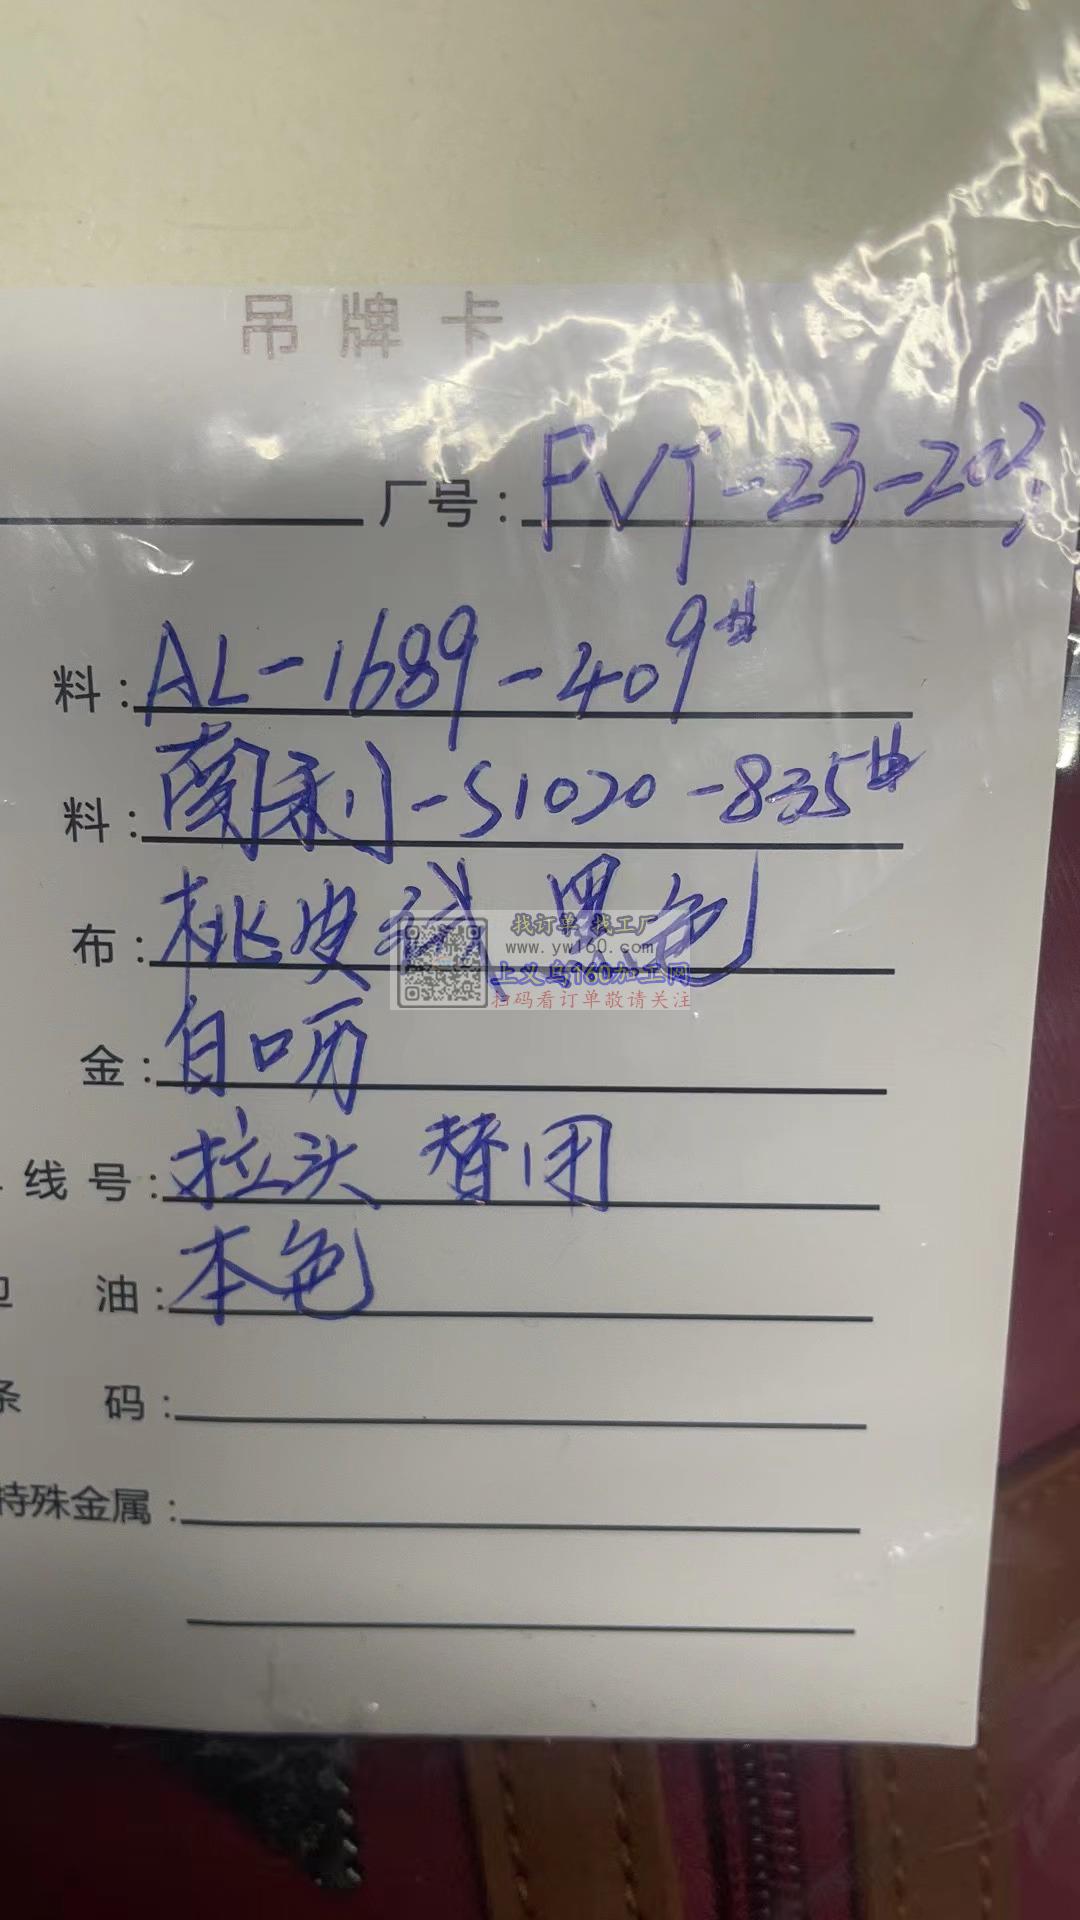 吊牌卡
厂号：PVJ-23-203
料：AL-1689-409#
料：南利-S1020-835#
布：桃皮绒 黑色
找订单 找工厂
www.yw160.com
上义乌160加工网
扫码看订单敬请关注
金：白叻
线号：拉头 替用
油：本色
条码：
特殊金属：